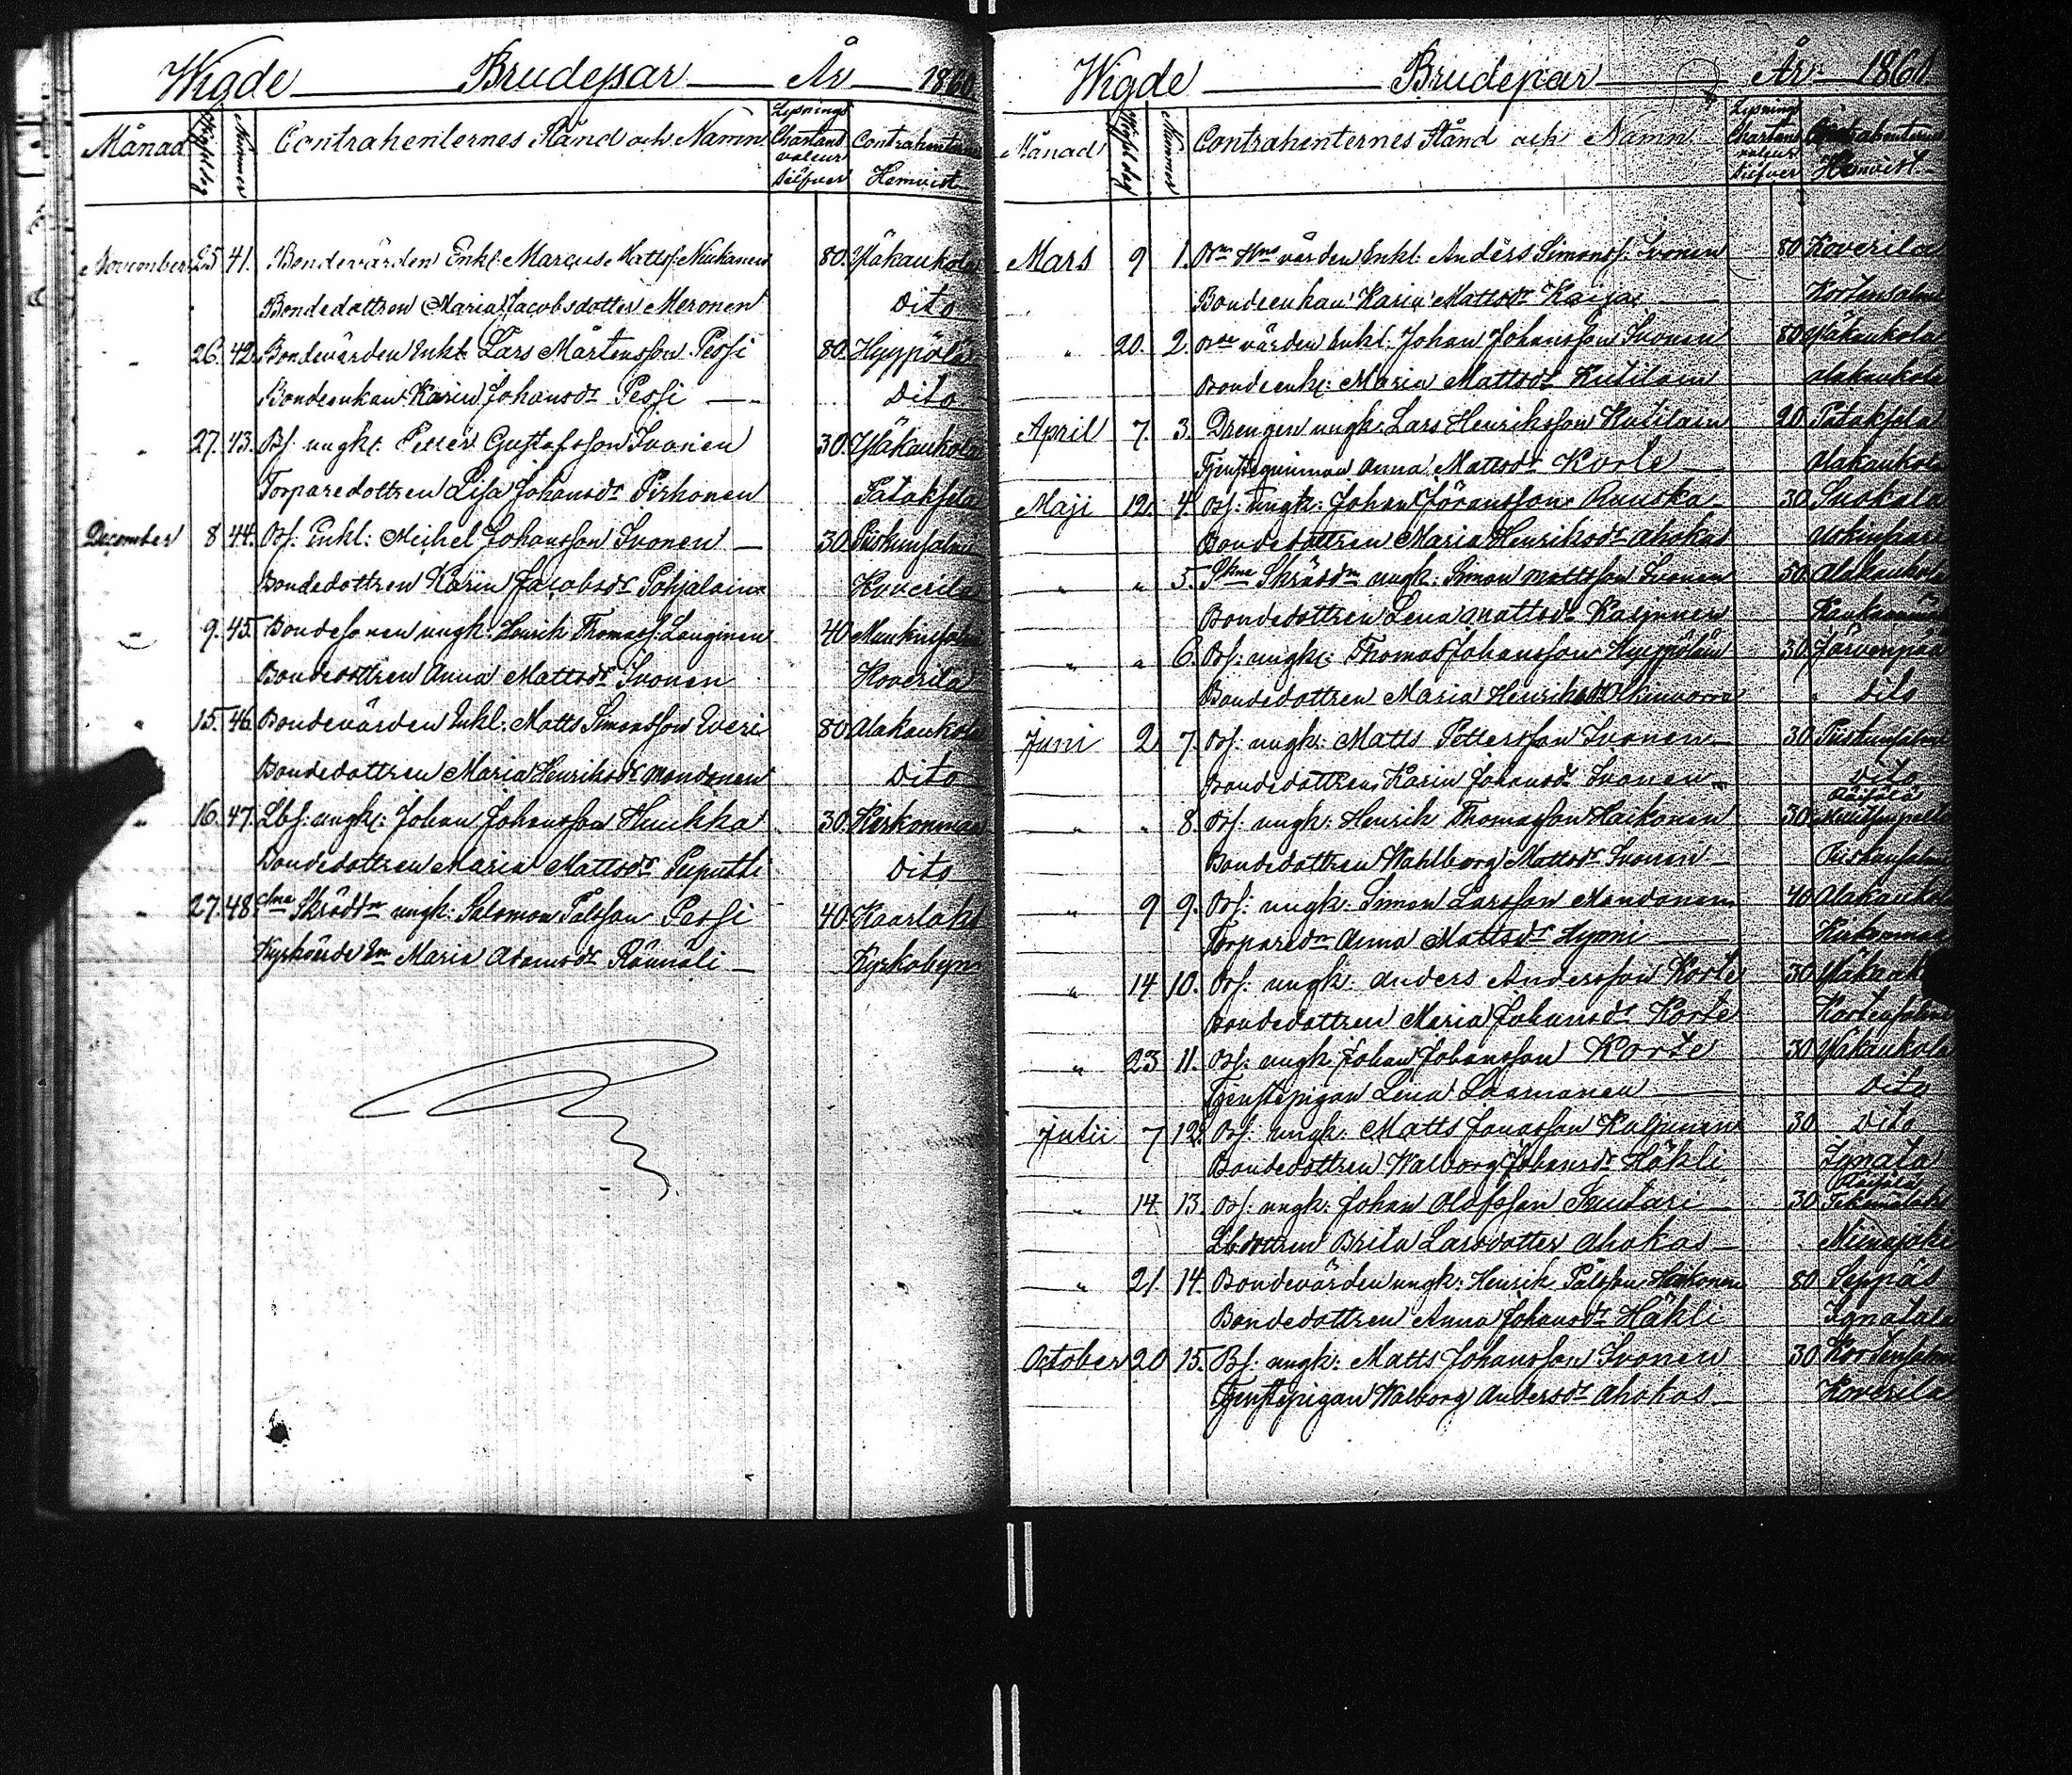 Wigde Brudepar År 1860
Månad Wigsel dag Nummer Contrahenternes Stånd och Namn Lysnings Chartand valeur Silfver Contrahenternes Hemvist
November 25. 41. Bondevärden Enkl. Marcus Mattss. Niukanen 80. Yläkaukola
Bondedottren Maria Jacobsdotter Meronen Dito
" 26. 42. Bondevärden Enkl. Lars Mårtensson Pessi 80. Hyypölä
Bondeenkan Karin Johansdr Pessi — Dito
" 27. 43. Bs. ungk. Petter Gustafsson Ivonen 30. Yläkaukola
Torparedottren Lisa Johansdr Pirhonen Pataksela
December 8 44. Bs. Enkl. Michel Johansson Ivonen — 30 Piiskunsalmi
Bondedottren Karin Jacobsdr Pohjalain Koverila
" 9. 45. Bondesonen ungk. Henrik Thomass. Langinen 40
Bondedottren Anna Mattsdr Ivonen Koverila
" 15. 46. Bondevärden Enkl. Matts Simonsson Everi 80 Alakaukola
Bondedottren Maria Henriksdr Mondonen Dito
" 16. 47. Lbs. ungk. Johan Johansson Huuhka 30. Kirkonmaa
Bondedottren Maria Mattsdr Peiputti Dito
" 27. 48. Skrädd ungk. Salomon Pålsson Pessi 40. Kaarlaks
Maria Adamsdr Rännäli — Kyrkobyn
Wigde Brudepar År 1861
Månad Wigsel dag Nummer Contrahenternes Stånd och Namn Lysnings Chartans valeur Silfver Contrahenternes Hemvist
Mars 9 1. värden Enkl. Anders Simonss. Ivonen 80 Koverila
Bondeenkan Karin Mattsdr Kaija Kortensalmi
" 20. 2. värden Enkl. Johan Johansson Ivonen 80 Yläkaukola
Bondeenk. Maria Mattsdr Kutilain Alakaukola
April 7. 3. Drengen ungk. Lars Henriksson Kutilain 20. Pataksela
Tjensteqvinnan Anna Mattsdr Korte Alakaukola
Maji 12. 4. Bs. ungk. Johan Göransson Ruuska 30 Suokala
Bondedottren Maria Henriksdr Ahokas
" " 5. Skrädd ungk. Simon Mattsson Ivonen 50 Alakaukola
Bondedottren Lena Mattsdr Kaljunen
" " 6. Bs. ungk. Thomas Johansson Hyyppöläin 30 Järvenpää
Bondedottren Maria Henriksdr " Dito
Juni 2 7. Bs. ungk. Matts Pettersson Ivonen — 30 Piiskunsalmi
Bondedottren Karin Johansdr Ivonen — Dito
" " 8. Bs. ungk. Henrik Thomasson Haikonen 30 Räisälä
Bondedottren Wahlborg Mattsdr Ivonen — Piiskunsalmi
" 9 9. Bs. ungk. Simon Larsson Mondonen 40 Alakaukola
Torparedr Anna Mattsdr Hynni Kirkonmaa
" 14 10. Bs. ungk. Anders Andersson Korte 30
Bondedottren Maria Johansdr Korte Kortensalmi
" 23 11. Bs. ungk. Johan Johansson Korte 30 Yläkaukola
Tjenstepigan Lena Laamanen Dito
Julii 7 12. Bs. ungk. Matts Jonasson Kaljunen 30 Dito
Bondedottren Walborg Johansdr Häkli Ignata
" 14. 13. Bs. ungk. Johan Olofsson Suutari — 30
Lbdottren Brita Larsdotter Ahokas — Niinajoki
" 21. 14. Bondevärden ungk. Henrik Pålsson 80. Seppäs
Bondedottren Anna Johansdr Häkli Ignatala
October 20 15. Bs. ungk. Matts Johansson Ivonen 30 Kortensalmi
Tjenstepigan Walborg Andersdr Ahokas — Koverila